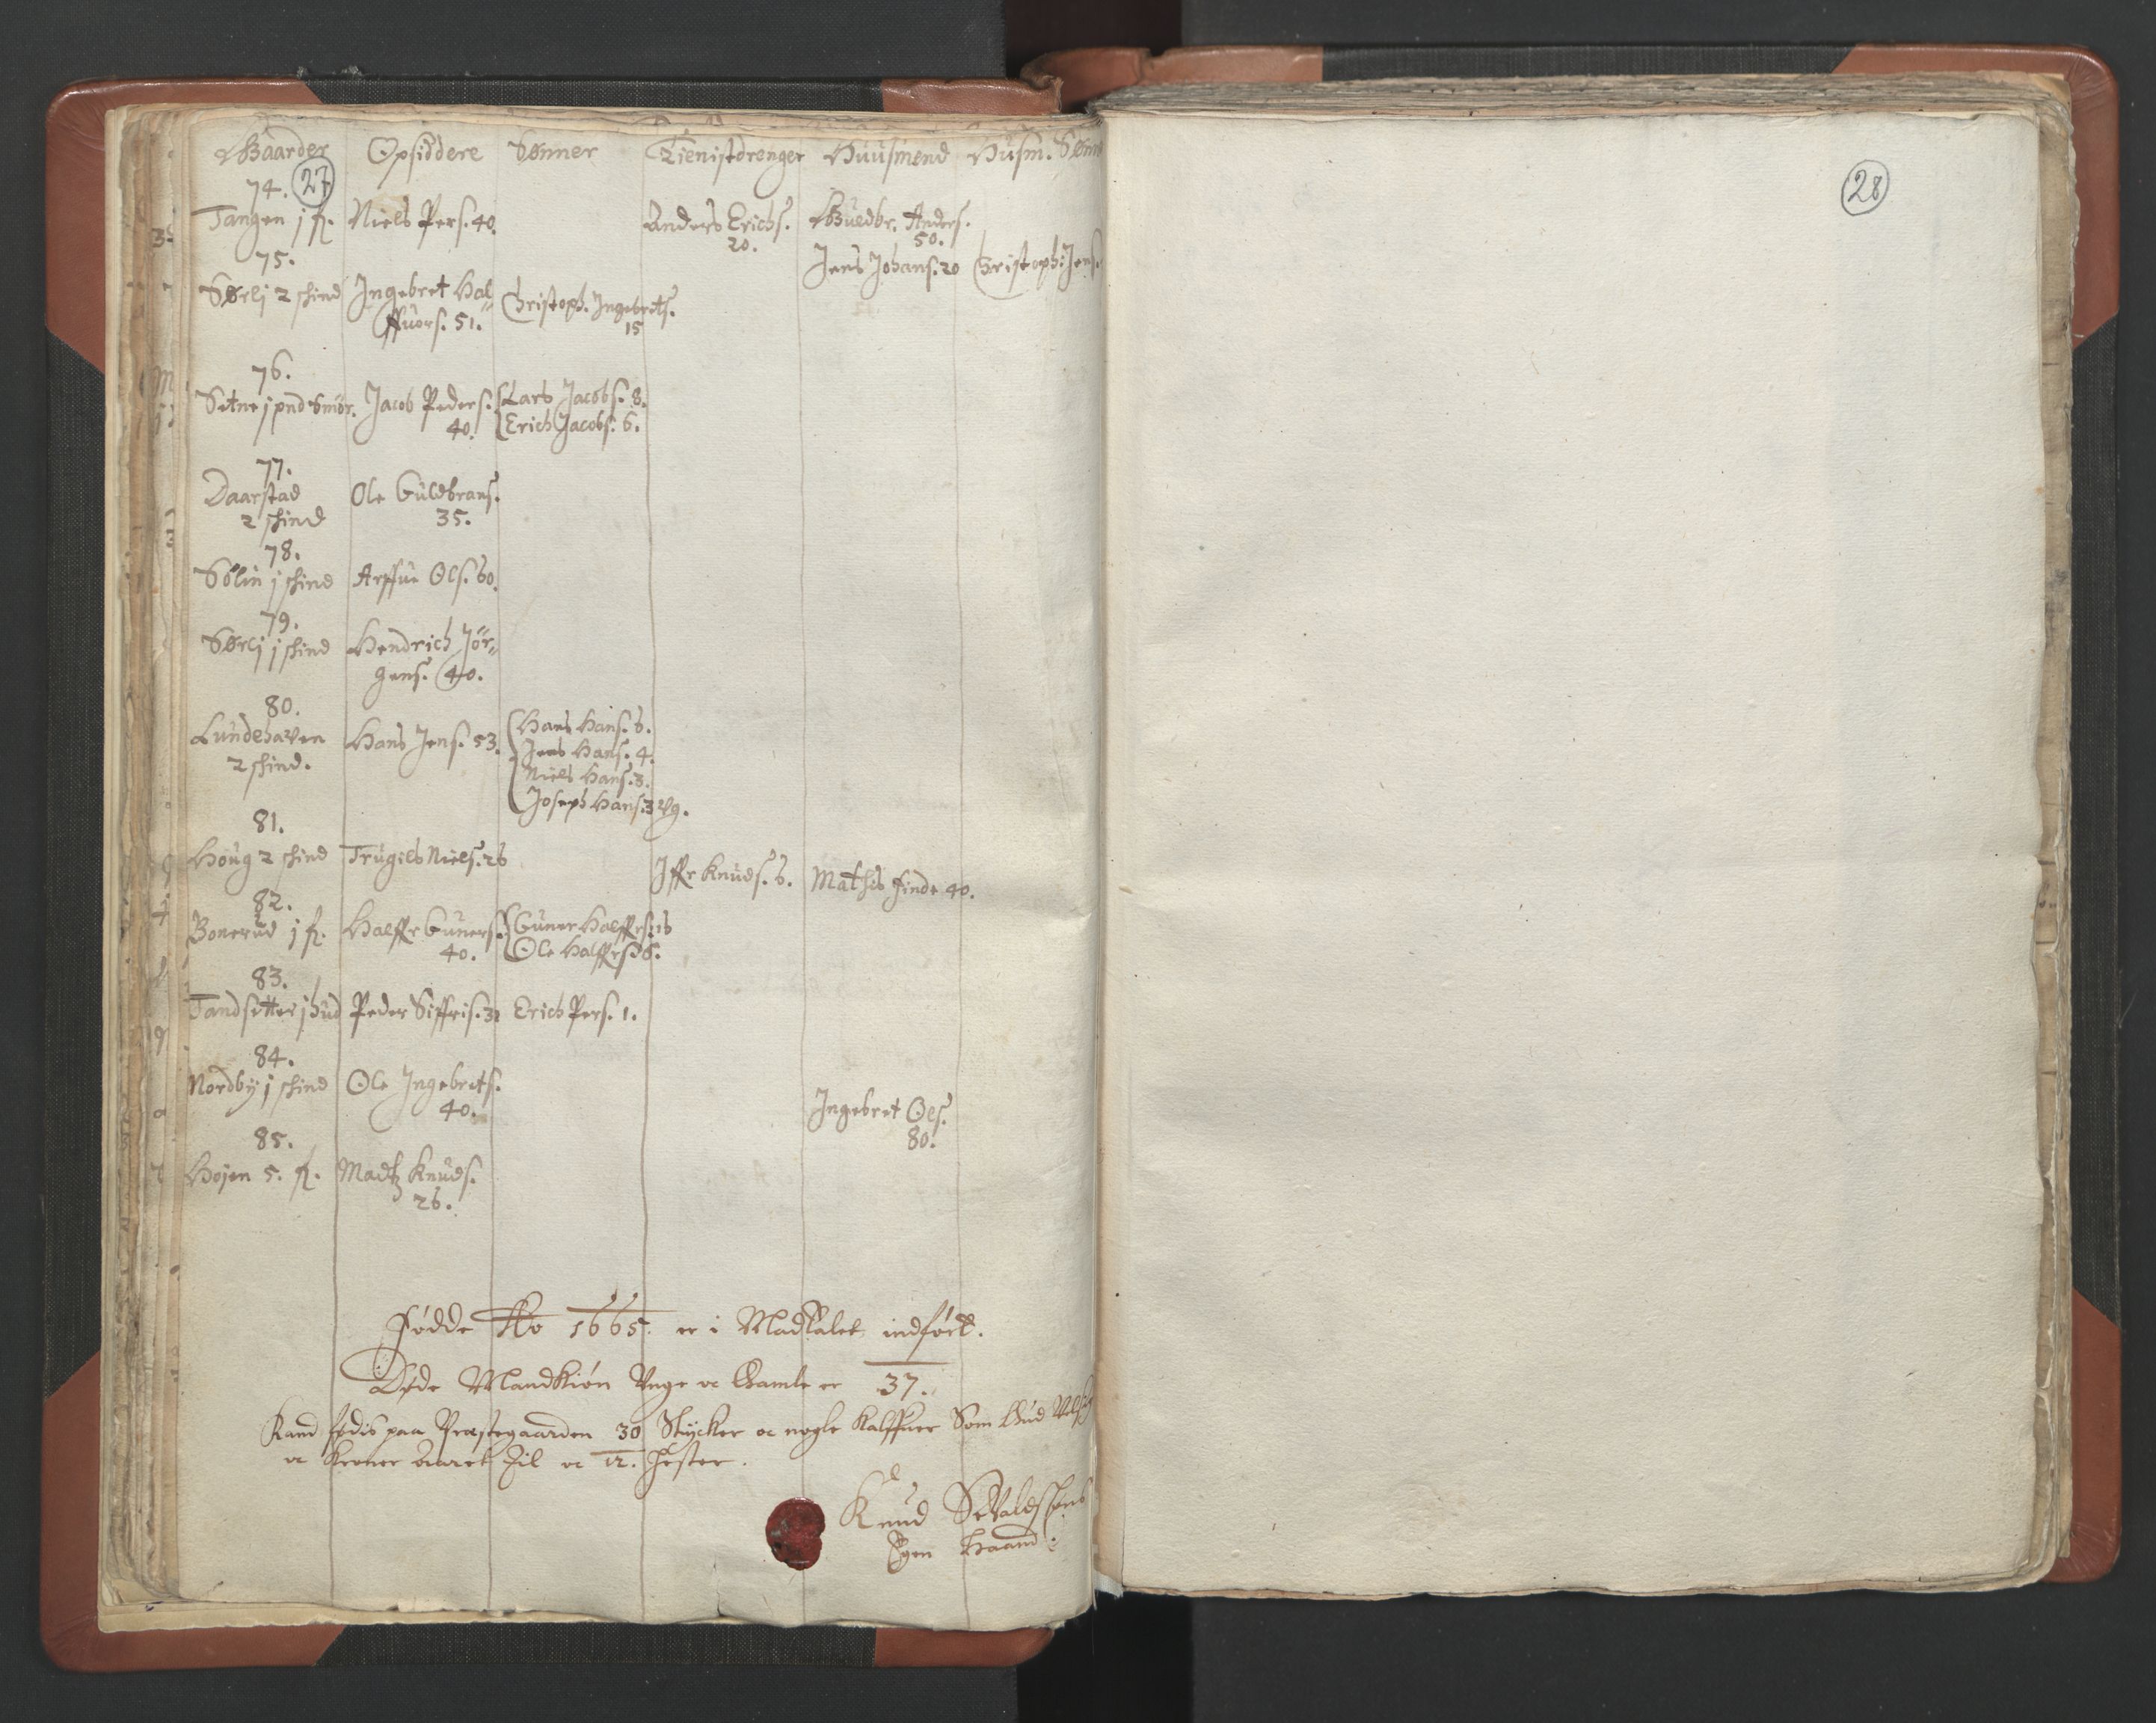 Gaarder Opsiddere Sønner Tienistdrenger Huusmend Husm. Sønner
74. 27
Tangen j fl. Niels Pers. 40. Anders Erichs. 20. Guldbr. Anders. 50.
Jens Johans. 20 Christoph: Jens.
75.
Sørlj 2 schind Ingebret Hal
ffuors. 51. Christoph. Ingebrets. 15
76.
Setne j pnd Smør. Jacob Peders. 40. Lars Jacobs. 8.
Erich Jacobs. 6.
77.
Daarstad Ole Guldbrans.
2 schind 35.
78.
Sølin j schind Arffue Ols. 60.
79.
Sørlj j schind Hendrich Jør
gens. 40.
80.
Lundehaven Hans Jens. 53. Hans Hans. 6.
2 schind. Jens Hans. 4.
Niels Hans. 3.
Joseph Hans. 3 vg.
81.
Houg 2 schind Trugils Niels. 26 Iffr Knuds. 6. Mathis Finde 40.
82.
Bonerud j fl. Halffr Guners. 40. Guner Halffrs. 16
Ole Halffrs. 6.
83.
Tandsetter j hud Peder Siffris. 32 Erich Pers. 1.
84.
Nordby j schind Ole Ingebrets.
40. Ingebret Ols.
80.
85.
Hojen 5. fl. Madtz Knuds.
26.
Fødde Ao 1665. er i Madtalet indført.
Døde Mandkiøn Unge oc Gamle er 37.
Kand fødis paa Præstegaarden 30 Stycker oc nogle Kalffuer Som Gud
oc Kroner Aaret Til oc 12. Hester.
Knud Sevaldssøns
Egen Haand
28